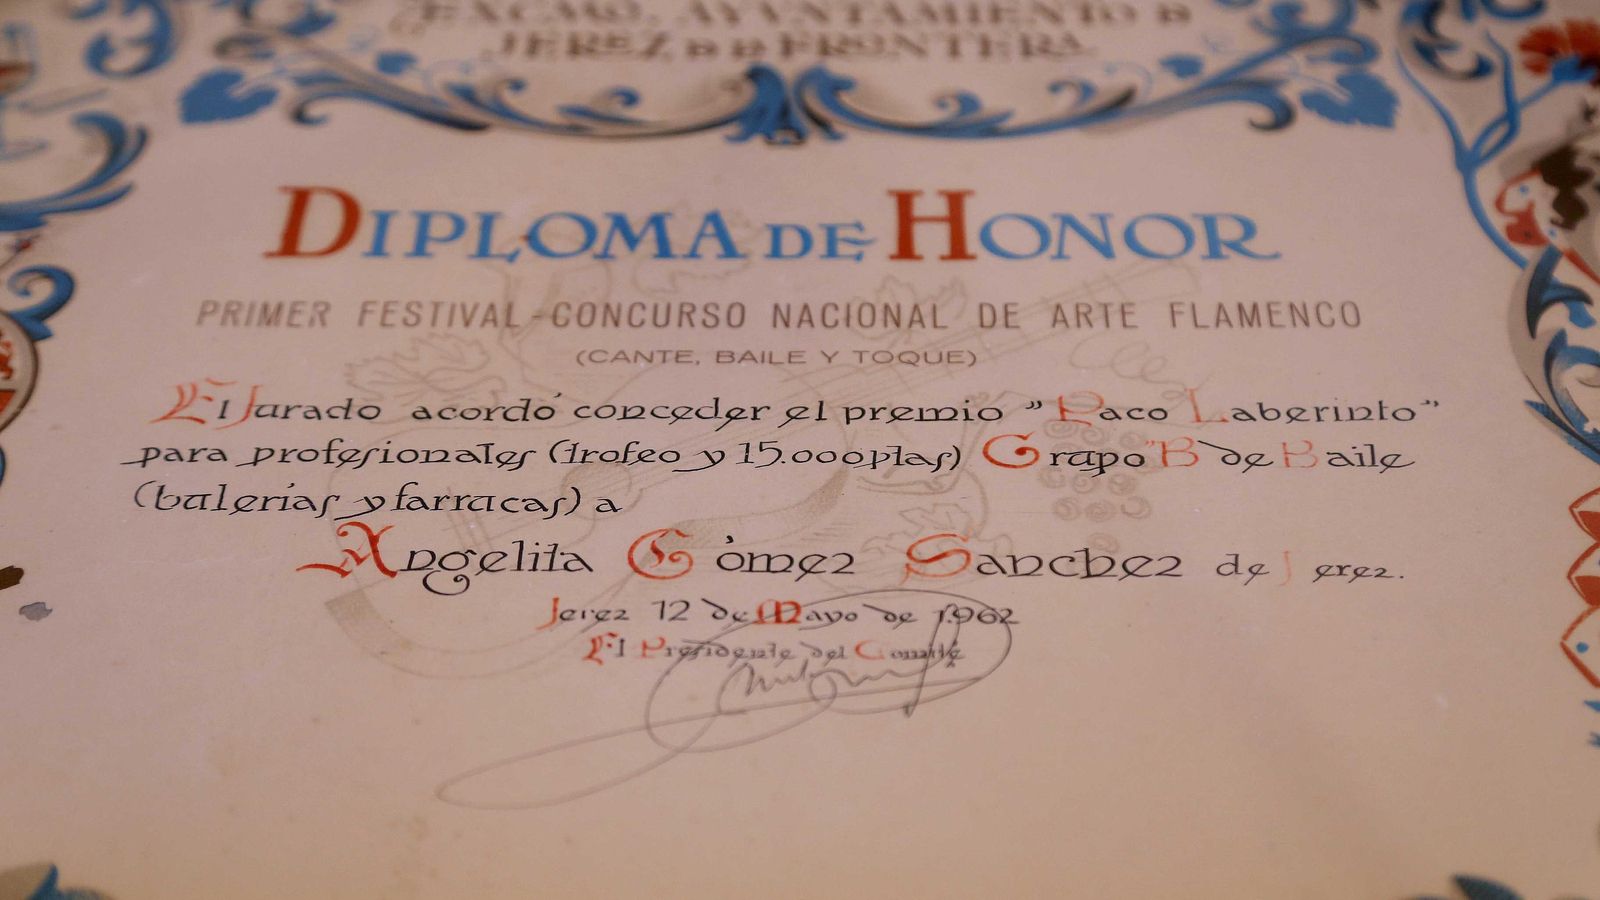 EXCMO. AYUNTAMIENTO D
JEREZ D D FRONTERA
DIPLOMA DE HONOR
PRIMER FESTIVAL-CONCURSO NACIONAL DE ARTE FLAMENCO
(CANTE, BAILE Y TOQUE)
El Jurado acordó conceder el premio "Paco Laberinto"
para profesionales (trofeo y 15.000 ptas) Grupo "B" de Baile
(bulerías y farrucas) a
Angelita Gómez Sanchez de Jerez.
Jerez 12 de Mayo de 1.962
El Presidente del Comité